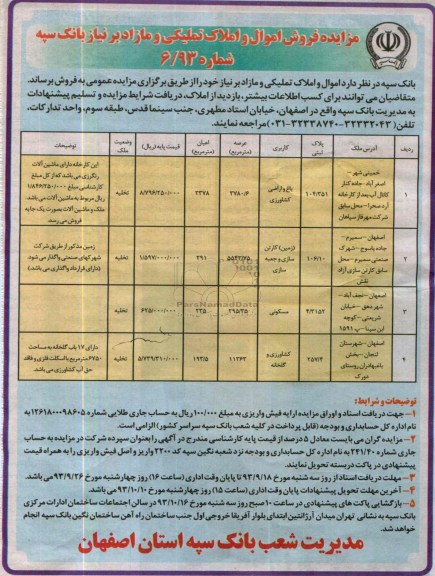 مزایده فروش اموال و املاک تملیکی و مازاد بر نیاز بانک سپه
شماره ۶/۹۳
بانک سپه در نظر دارد اموال و املاک تملیکی و مازاد بر نیاز خود را از طریق برگزاری مزایده عمومی به فروش برساند.
متقاضیان می توانند برای کسب اطلاعات بیشتر، بازدید از املاک، دریافت شرایط مزایده و تسلیم پیشنهادات
به مدیریت بانک سپه واقع در اصفهان، خیابان استاد مطهری، جنب سینما قدس، طبقه سوم، واحد تدارکات،
تلفن (۳۲۳۳۲۰۴۳-۳۲۳۳۸۷۴۰-۰۳۱) مراجعه نمایند.
ردیف آدرس ملک پلاک ثبتی کاربری عرصه (مترمربع) اعیان (مترمربع) قیمت پایه (ریال) وضعیت ملک توضیحات
۱ خمینی شهر – اصغر آباد- جاده کنار کانال آب بعد از کارخانه آرد صحرا – محل سابق شرکت مهرفاز سپاهان ۱۰۴/۳۵۱ باغ و اراضی کشاورزی ۳۷۸۰/۶ ۲۳۷۸ ۸/۷۹۶/۲۵۰/۰۰۰ تخلیه این کارخانه دارای ماشین آلات رنگرزی می باشد که از کل مبلغ کارشناسی مبلغ ۱/۸۴۶/۲۵۰/۰۰۰ ریال مربوط به ماشین آلات می باشد. ملک و ماشین آلات بصورت یک جا به فروش می رسد
۲ اصفهان – سمیرم – جاده یاسوج – شهرک صنعتی سمیرم – محل سابق کارتن سازی آراد نقش ۱۰۶/۱۰ (زمین) کارتن سازی و جعبه سازی ۵۵۹۲/۷۵ ۲۹۱ ۱/۵۹۷/۰۰۰/۰۰۰ تخلیه زمین مذکور از طریق شرکت شهرکهای صنعتی واگذار می شود (دارای قرارداد واگذاری می باشد)
۳ اصفهان – نجف آباد – شهر دهق – خیابان شریعتی – کوچه ابن سینا – پ ۱۵۹۱ ۴/۲۱۵۲ مسکونی ۲۹۵/۳۵ ۲۳۵ ۶۲۵/۰۰۰/۰۰۰ تخلیه
۴ اصفهان – شهرستان لنجان – بخش باغبهادران روستای دورک ۲۵۷/۴ کشاورزی و گلخانه ۱۱۲۶۳ ۱۹۳/۵ ۵/۷۳۹/۳۱۰/۰۰۰ تخلیه دارای ۱۷ باب گلخانه به مساحت ۶۷۵۰ مترمربع با اسکلت فلزی و فاقد حق آب کشاورزی می باشد
ParsNamadData
توضیحات و شرایط:
۱- جهت دریافت اسناد و اوراق مزایده ارایه فیش واریزی به مبلغ ۱۰۰/۰۰۰ ریال به حساب جاری طلایی شماره ۱۲۶۱۸۰۰۰۹۸۶۰۵ به
نام اداره کل حسابداری و بودجه (قابل پرداخت در کلیه شعب بانک سپه سراسر کشور) الزامی است.
۲- مزایده گران می بایست معادل ۵ درصد از قیمت پایه کارشناسی مندرج در آگهی را بعنوان سپرده شرکت در مزایده به حساب
جاری شماره ۲۴۱/۴۰ به نام اداره کل حسابداری و بودجه نزد شعبه نگین سپه کد ۲۲۰۰ واریز و اصل فیش واریزی را به همراه قیمت
پیشنهادی در پاکت دربسته تحویل نمایند.
۳- مهلت دریافت اسناد از روز سه شنبه مورخ ۹۳/۹/۱۸ تا پایان وقت اداری (ساعت ۱۶) روز چهارشنبه مورخ ۹۳/۹/۲۶ می باشد.
۴- آخرین مهلت تحویل پیشنهادات پایان وقت اداری (ساعت ۱۵) روز چهارشنبه مورخ ۹۳/۱۰/۱۰ می باشد.
۵- بازگشایی پاکت های پیشنهادی در ساعت ۱۰ صبح روز سه شنبه مورخ ۹۳/۱۰/۱۶ در سالن اجتماعات ساختمان ادارات مرکزی
بانک سپه به نشانی تهران میدان آرژانتین ابتدای بلوار آفریقا خروجی اول جنب ساختمان راه آهن ساختمان نگین بانک سپه انجام
خواهد شد.
مدیریت شعب بانک سپه استان اصفهان